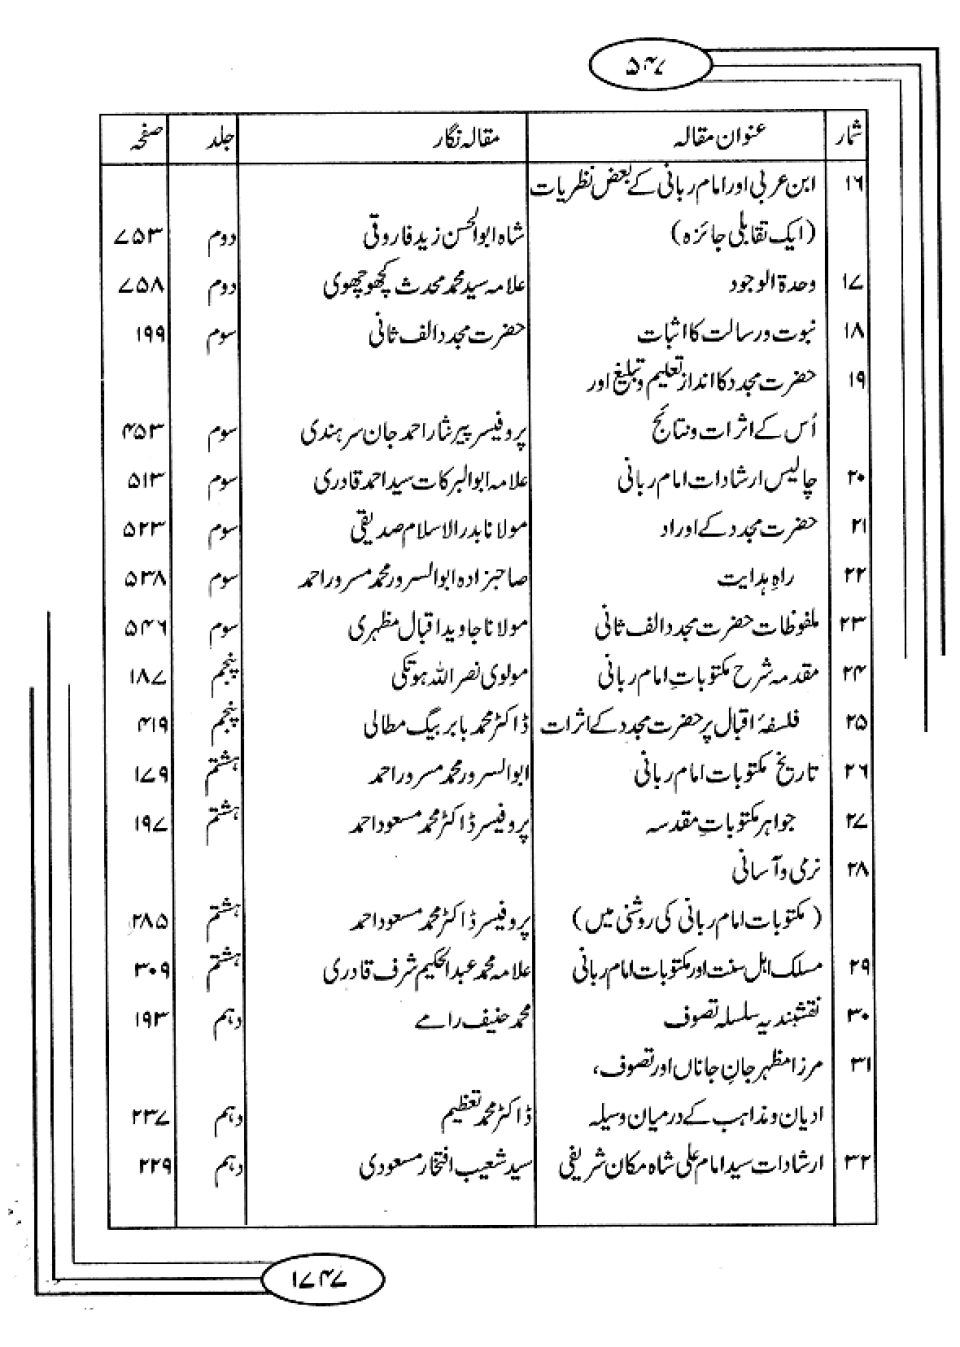 ۵۴۷
شمار عنوان مقالہ مقالہ نگار جلد صفحہ
۱۶ ابن عربی اور امام ربانی کے بعض نظریات
(ایک تقابلی جائزہ) شاہ ابوالحسن زید فاروقی دوم ۷۵۳
۱۷ وحدۃ الوجود علامہ سید محمد محدث کچھوچھوی دوم ۷۵۸
۱۸ نبوت و رسالت کا اثبات حضرت مجدد الف ثانی سوم ۱۹۹
۱۹ حضرت مجدد کا انداز تعلیم و تبلیغ اور
اُس کے اثرات و نتائج پروفیسر پیر نثار احمد جان سرہندی سوم ۴۵۳
۲۰ چالیس ارشادات امام ربانی علامہ ابوالبرکات سید احمد قادری سوم ۵۱۳
۲۱ حضرت مجدد کے اوراد مولانا بدر الاسلام صدیقی سوم ۵۲۳
۲۲ راہِ ہدایت صاحبزادہ ابوالسرور محمد مسرور احمد سوم ۵۳۸
۲۳ ملفوظات حضرت مجدد الف ثانی مولانا جاوید اقبال مظہری سوم ۵۴۶
۲۴ مقدمہ شرح مکتوباتِ امام ربانی مولوی نصر اللہ ہوتکی پنجم ۱۸۷
۲۵ فلسفۂ اقبال پر حضرت مجدد کے اثرات ڈاکٹر محمد بابر بیگ مطالی پنجم ۴۱۹
۲۶ تاریخ مکتوبات امام ربانی ابوالسرور محمد مسرور احمد ہشتم ۱۷۹
۲۷ جواہر مکتوباتِ مقدسہ پروفیسر ڈاکٹر محمد مسعود احمد ہشتم ۱۹۷
۲۸ نرمی و آسانی
(مکتوبات امام ربانی کی روشنی میں) پروفیسر ڈاکٹر محمد مسعود احمد ہشتم ۲۸۵
۲۹ مسلک اہل سنت اور مکتوبات امام ربانی علامہ محمد عبدالحکیم شرف قادری ہشتم ۳۰۹
۳۰ نقشبندیہ سلسلہ تصوف محمد حنیف رامے دہم ۱۹۳
۳۱ مرزا مظہر جانِ جاناں اور تصوف،
ادیان و مذاہب کے درمیان وسیلہ ڈاکٹر محمد تعظیم دہم ۲۳۷
۳۲ ارشادات سید امام علی شاہ مکان شریفی سید شعیب افتخار مسعودی دہم ۲۲۹
۱۷۴۷